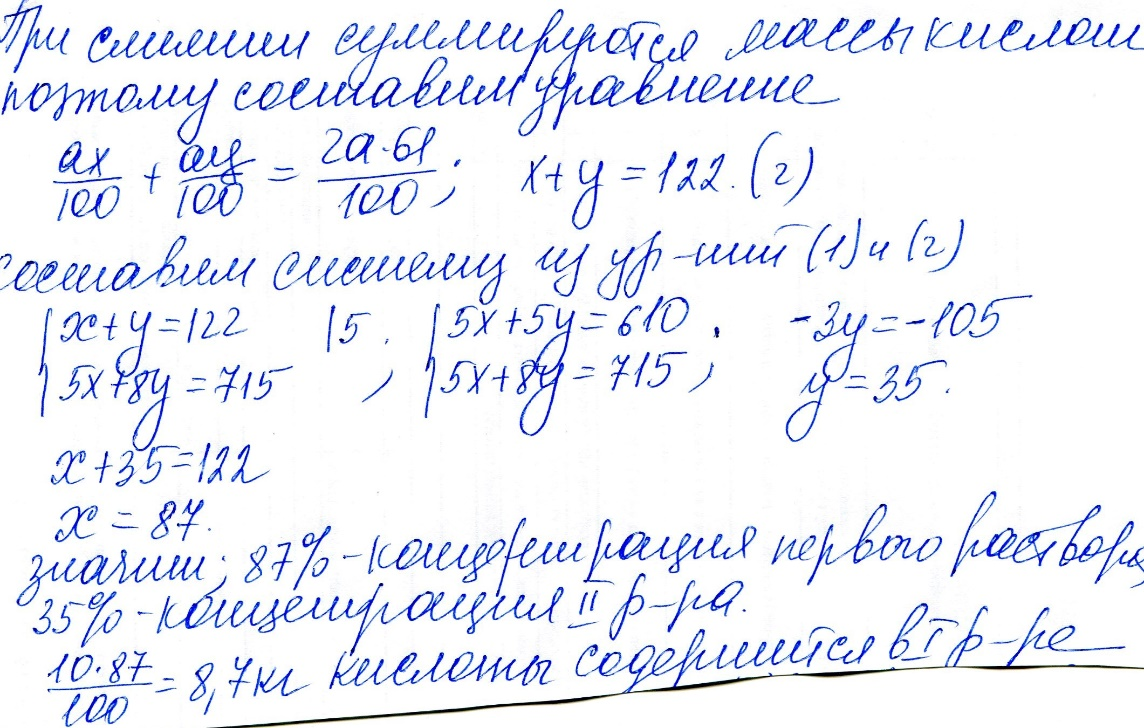 При слиянии суммируются массы кислот
поэтому составим уравнение
ax/100 + ay/100 = 2a·61/100; x+y=122. (2)
составим систему из ур-ний (1) и (2)
{x+y=122 |5. {5x+5y=610. -3y=-105
{5x+8y=715, {5x+8y=715, y=35.
x+35=122
x=87.
значит; 87%-концентрация первого раствора,
35%-концентрация II р-ра.
10·87/100 = 8,7кг кислоты содержится в I р-ре